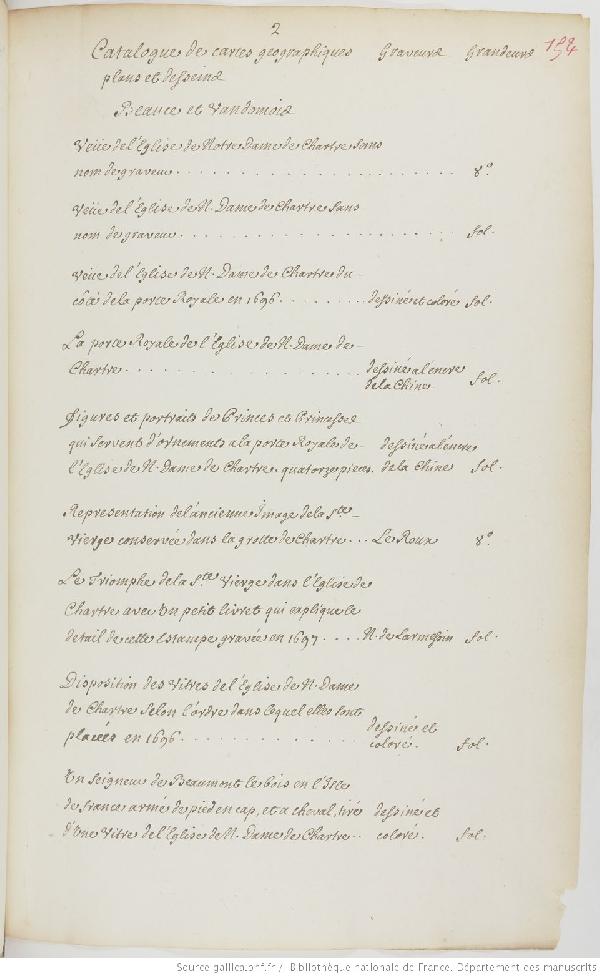 2
Catalogue de cartes geographiques Graveurs Grandeurs 154
plans et desseins
Beauce et Vandomois
Veüe de l'Eglise de Notre Dame de Chartre sans
nom de graveur. . . . . . . . . . . . . . . . . . . . . . 8.º
Veüe de l'Eglise de N. Dame de Chartre sans
nom de graveur. . . . . . . . . . . . . . . . . . . . . . fol.
Veüe de l'Eglise de N. Dame de Chartre du
côté de la porte Royale en 1696. . . . . . . . dessiné et coloré fol.
La porte Royale de l'Eglise de N. Dame de
Chartre. . . . . . . . . . . . . . . . . . dessiné a l'encre
de la Chine fol.
Figures et portraits de Princes et Princesses
qui servent d'ornements a la porte Royale de dessiné a l'encre
l'Eglise de N. Dame de Chartre. quatorze pieces. de la Chine fol.
Representation de l'ancienne Image de la Ste
Vierge conservée dans la grotte de Chartre. . . Le Roux 8.º
Le Triomphe de la Ste Vierge dans l'Eglise de
Chartre avec Un petit livret qui explique le
detail de cette Estampe gravée en 1697. . . . N. de Larmessin fol.
Disposition des Vitres de l'Eglise de N. Dame
de Chartre selon l'ordre dans lequel elles sont
placées en 1696. . . . . . . . . . . . . . . dessiné et
coloré. fol.
Un seigneur de Beaumont le bois en l'Isle
de france armé de pied en cap, et a cheval, tiré dessiné et
d'Une Vitre de l'Eglise de N. Dame de Chartre. . coloré. fol.
Source gallica.bnf.fr / Bibliothèque nationale de France. Département des manuscrits